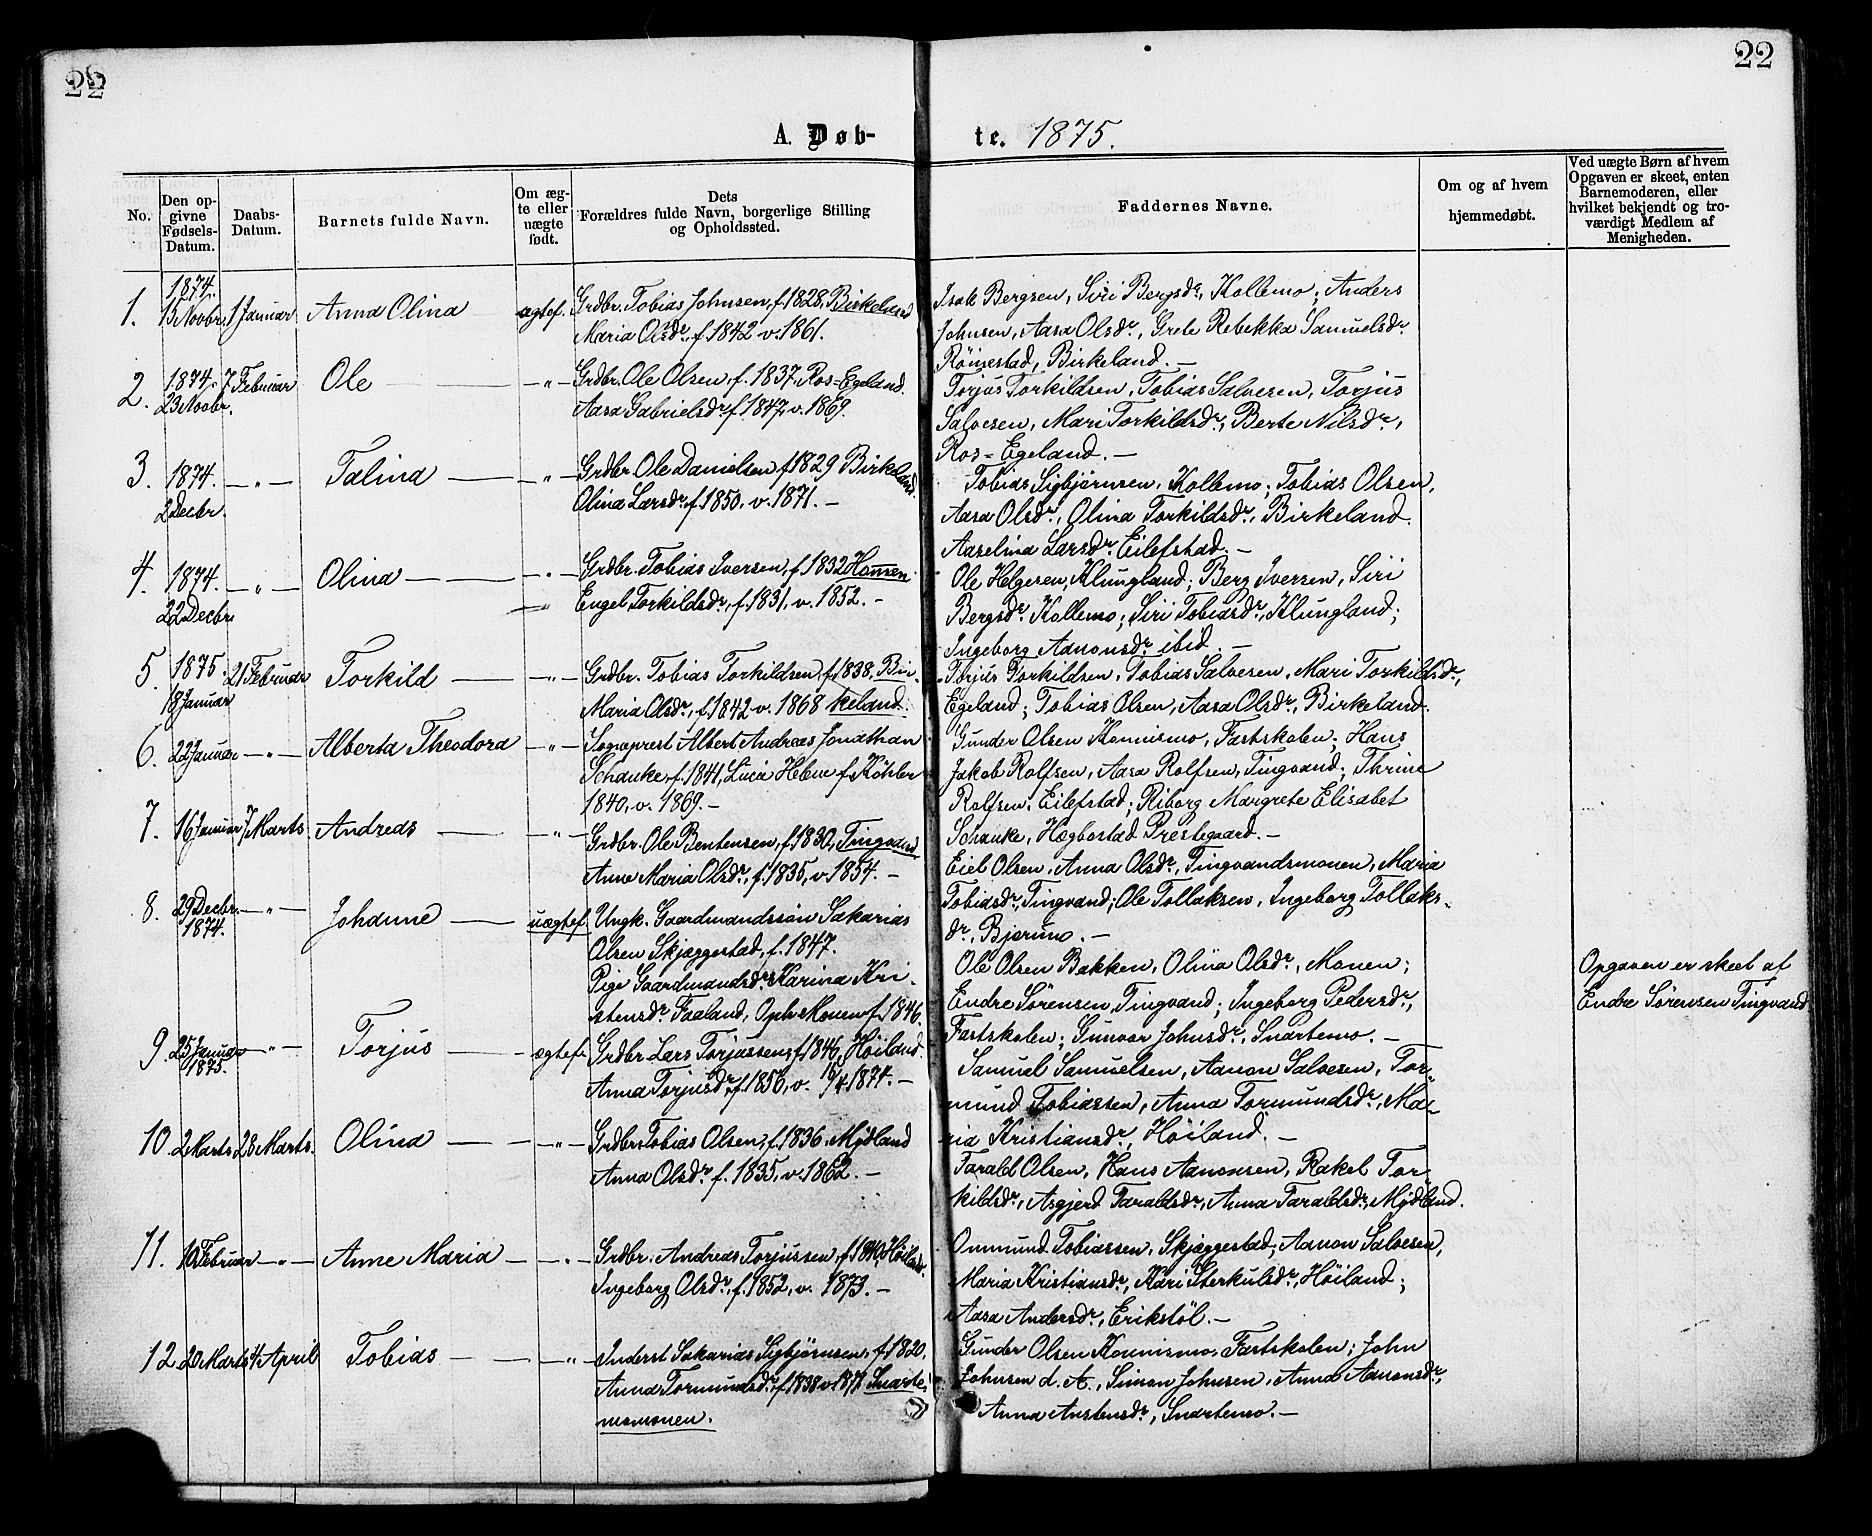 22
22
A. Døb-
te. 1875.
No.
Den op-
givne
Fødsels-
Datum.
Daabs-
Datum.
Barnets fulde Navn.
Om æg-
te eller
uægte
født.
Dets
Forældres fulde Navn, borgerlige Stilling
og Opholdssted.
Faddernes Navne.
Om og af hvem
hjemmedøbt.
Ved uægte Børn af hvem
Opgaven er skeet, enten
Barnemoderen, eller
hvilket bekjendt og tro-
værdigt Medlem af
Menigheden.
1. 1874. 15 Novbr. 1 Januar Anna Olina ægtef. Grdbr. Tobias Johnsen, f. 1828, Birkeland
Maria Olsdr., f. 1842 v. 1861.
Isak Bergsen, Siri Bergsdr., Kollemo; Anders
Johnsen, Aasa Olsdr., Grete Rebekka Samuelsdr.
Römestad, Birkeland. —
2. 1874. 23 Novbr. 7 Februar Ole — " — Grdbr. Ole Olsen, f. 1837, Ros-Egeland.
Aasa Gabrielsdr. f. 1847, v. 1869.
Torjus Torkildsen, Tobias Salvesen, Torjus
Salvesen, Mari Torkildsdr., Berte Nilsdr.,
Ros-Egeland. —
3. 1874. 2 Decbr. — " — Talina — " — Grdbr. Ole Danielsen f. 1829 Birkeland.
Olina Larsdr. f. 1850, v. 1871. —
Tobias Sigbjörnsen, Kollemo; Tobias Olsen,
Aasa Olsdr., Olina Torkildsdr., Birkeland.
Aaselina Larsdr. Eilefstad. —
4. 1874. 22 Decbr. — " — Olina — " — Grdbr. Tobias Iversen, f. 1832 Hommen.
Engel Torkildsdr., f. 1831, v. 1852. —
Ole Helgesen, Klungland; Berg Iversen, Siri
Bergsdr. Kollemo; Siri Tobiasdr., Klungland;
Ingeborg Aanonsdr. ibid. —
5. 1875. 18 Januar 21 Februar Torkild — " — Grdbr. Tobias Torkildsen, f. 1838, Bir-
Maria Olsdr., f. 1842 v. 1868 keland.
Torjus Torkildsen, Tobias Salvesen, Mari Torkildsdr.,
Egeland; Tobias Olsen, Aasa Olsdr., Birkeland.
6. 22 Januar — " — Alberta Theodora — " — Sogneprest Albert Andreas Jonathan
Schanke, f. 1841, Lucia Helene f. Köhler
1840, v. 1869. —
Gunder Olsen Konnismo, Fastskolen; Hans
Jakob Rolfsen, Aasa Rolfsen, Tingvand; Thrine
Rolfsen, Eilefstad; Riborg Margrete Elisabet
Schanke, Hægbostad Prestegaard. —
7. 16 Januar 7 Marts Andreas — " — Grdbr. Ole Bentensen, f. 1830, Tingvand
Anne Maria Olsdr., f. 1835, v. 1854. —
Eiel Olsen, Anna Olsdr., Tingvandsmonen, Maria
Tobiasdr., Tingvand; Ole Tollaksen, Ingeborg Tollaks-
dr., Bjerumo. —
8. 29 Decbr. 1874. — " — Johanne — uægtef. Ungk. Gaardmandssön Sakarias
Olsen Skjæggestad, f. 1847.
Pige Gaardmandsdr. Karina Kri-
stensdr. Faaland, Oph. Monen f. 1846.
Ole Olsen Bakken, Olina Olsdr., Monen;
Endre Sörensen, Tingvand; Ingeborg Pedersdr.,
Fastskolen; Gunvor Johnsdr., Snartemo. —
Opgaven er skeet af
Endre Sörensen Tingvand
9. 25 Januar 1875. — " — Torjus — ægtef. Grdbr. Lars Torjussen, f. 1846, Höiland.
Anna Torjusdr., f. 1856, v. 15/4 1874. —
Samuel Samuelsen, Aanon Salvesen, Tor-
mund Tobiassen, Anna Tormundsdr., Ma-
ria Kristiansdr., Höiland. —
10. 2 Marts 28 Marts. Olina — " — Grdbr. Tobias Olsen, f. 1836. Mydland
Anna Olsdr. f. 1835, v. 1862. —
Tarald Olsen, Hans Aanonsen, Rakel Tor-
kildsdr., Asgjerd Taraldsdr., Anna Taraldsdr., Mydland.
11. 10 Februar — " — Anne Maria — " — Grdbr. Andreas Torjussen, f. 1840, Höiland.
Ingeborg Olsdr., f. 1852, v. 1873. —
Onmund Tobiassen, Skjæggestad; Aanon Salvesen,
Maria Kristiansdr., Kari Sterkulsdr., Höiland;
Aasa Andersdr., Erikstöl. —
12. 20 Marts 4 April Tobias — " — Inderst Sakarias Sigbjörnsen, f. 1820,
Anna Tormundsdr. f. 1838 v. 1871 Snarte-
momonen.
Gunder Olsen Konnismo, Fastskolen; John
Johnsen d. A., Simon Johnsen, Anna Aanonsdr.,
Anna Anstensdr., Snartemo. —